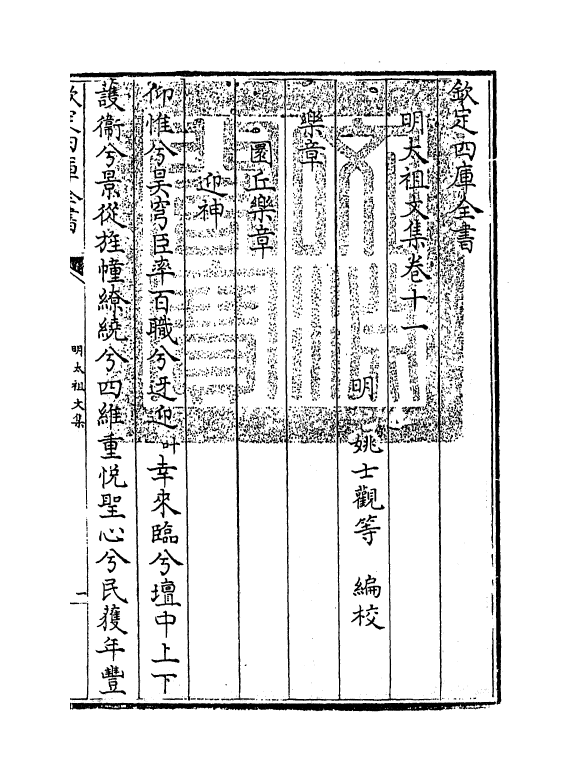 欽定四庫全書
明太祖文集卷十一
明 姚士觀等 編校
樂章
圜丘樂章
迎神
仰惟兮昊穹臣率百職兮迓迎叶幸來臨兮壇中上下
護衛兮景從旌幢繚繞兮四維重悅聖心兮民獲年豐
欽定四庫全書
明太祖文集
一